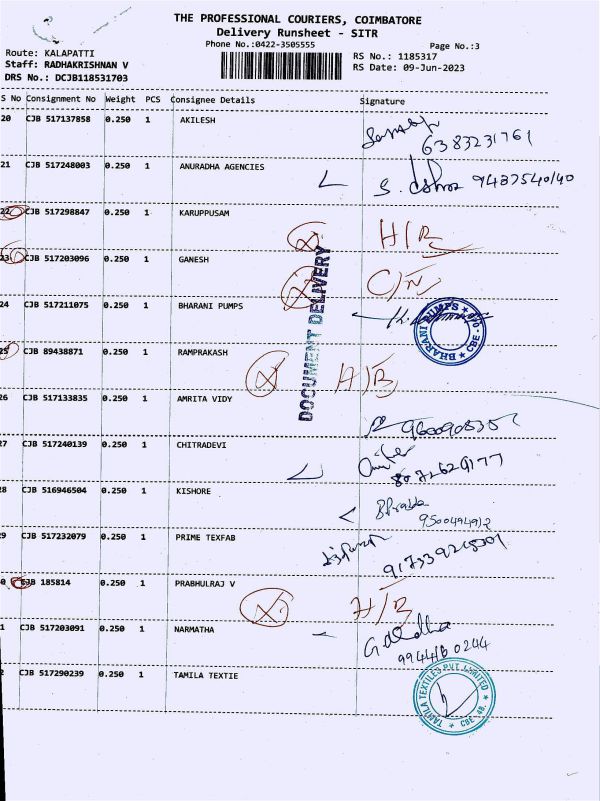 THE PROFESSIONAL COURIERS, COIMBATORE
Delivery Runsheet - SITR
Phone No.:0422-3505555
Page No.:3
Route: KALAPATTI
Staff: RADHAKRISHNAN V
DRS No.: DCJB118531703
RS No.: 1185317
RS Date: 09-Jun-2023
S No Consignment No Weight PCS Consignee Details Signature
20 CJB 517137858 0.250 1 AKILESH
6383231761
21 CJB 517248003 0.250 1 ANURADHA AGENCIES
9487540140
22 CJB 517298847 0.250 1 KARUPPUSAM H/B
23 CJB 517203096 0.250 1 GANESH C/N
DOCUMENT DELIVERY
24 CJB 517211075 0.250 1 BHARANI PUMPS
BHARANI PUMPS
25 CJB 89438871 0.250 1 RAMPRAKASH H/B
26 CJB 517133835 0.250 1 AMRITA VIDY
27 CJB 517240139 0.250 1 CHITRADEVI
8072629177
8 CJB 516946504 0.250 1 KISHORE
9500494912
9 CJB 517232079 0.250 1 PRIME TEXFAB
0 CJB 185814 0.250 1 PRABHULRAJ V H/B
1 CJB 517203091 0.250 1 NARMATHA
9944160244
2 CJB 517290239 0.250 1 TAMILA TEXTIE
TAMILA TEXTILES PVT. LIMITED
CBE-48.